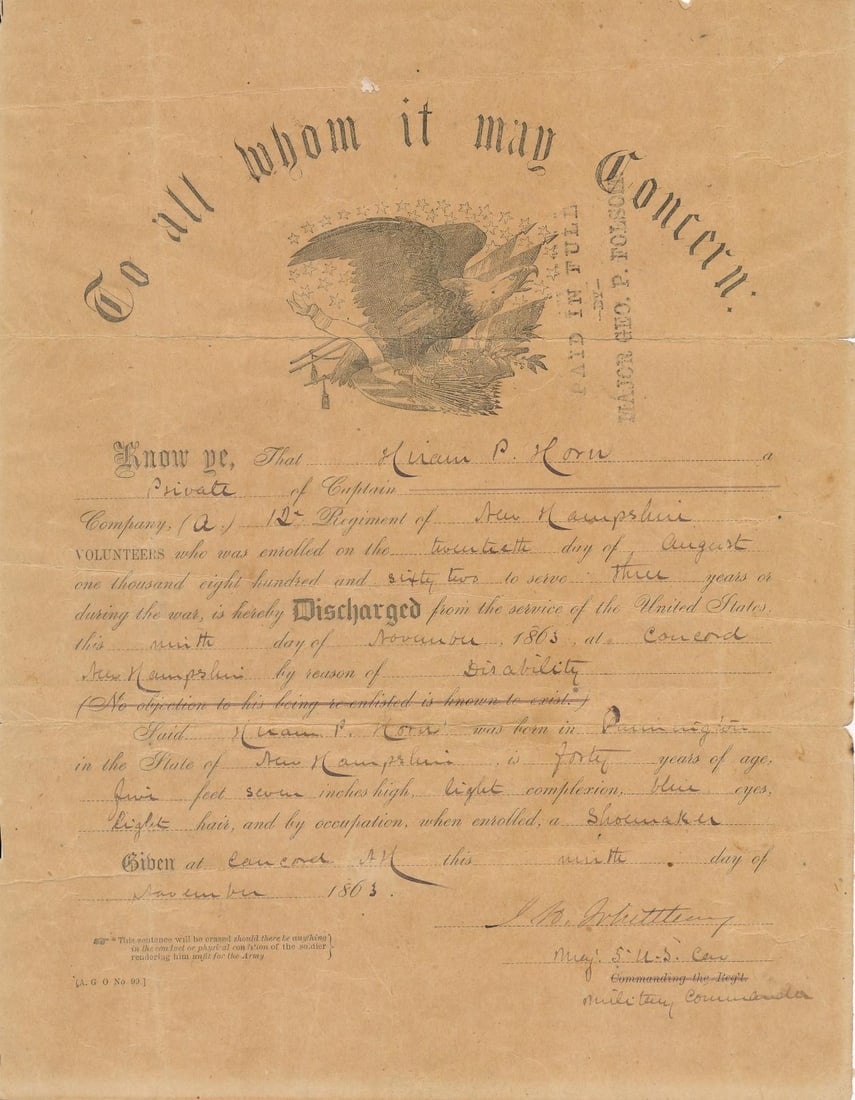 To all whom it may Concern:
PAID IN FULL
—BY—
MAJOR GEO. P. FOLSOM
Know ye, That Hiram P. Horn a
Private of Captain
Company, (A.) 12" Regiment of New Hampshire
VOLUNTEERS who was enrolled on the twentieth day of August
one thousand eight hundred and sixty two to serve three years or
during the war, is hereby Discharged from the service of the United States,
this ninth day of November, 1863, at Concord
New Hampshire by reason of Disability
(No objection to his being re-enlisted is known to exist.*)
Said Hiram P. Horn was born in
in the State of New Hampshire, is forty years of age,
five feet seven inches high, light complexion, blue eyes,
light hair, and by occupation, when enrolled, a Shoemaker
Given at Concord NH this ninth day of
November 1863.
Maj. 5" U.S. Cav
Commanding the Reg't.
Military Commander
*This sentence will be erased should there be anything
in the conduct or physical condition of the soldier
rendering him unfit for the Army
[A. G. O. No. 99.]